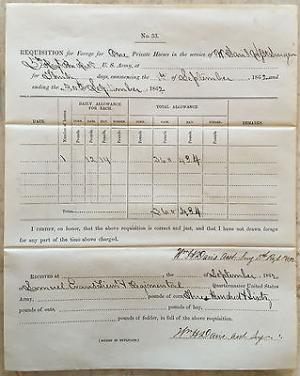 No. 33.
REQUISITION for Forage for One Private Horses in the service of
U. S. Army,
for Thirty days, commencing the 1st of September 1862, and
ending the 30th September 1862
DATE. DAILY ALLOWANCE FOR EACH. TOTAL ALLOWANCE. REMARKS.
Number of Horses. CORN. OATS. HAY. FODDER. CORN. OATS. HAY. FODDER.
Pounds. Pounds. Pounds. Pounds. Pounds. Pounds. Pounds. Pounds.
1 12 14 360 424
Total 360 424
I CERTIFY, on honor, that the above requisition is correct and just, and that I have not drawn forage
for any part of the time above charged.
Wm H Davis Asst. Surg
RECEIVED at the of September 1862,
of Samuel Evans Lieut & Regimental Quartermaster United States
Army, pounds of corn, Three Hundred Sixty
pounds of oats, pounds of hay,
pounds of fodder, in full of the above requisition.
[SIGNED IN DUPLICATE.] Wm H Davis Asst Surgeon